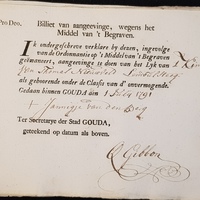 Pro Deo.
Billet van aangeevinge, wegens het
Middel van 't Begraven.
IK ondergeschreve verklare by dezen, ingevolge
van de Ordonnantie op 't Middel van 't Begraven
geëmaneert, aangevinge te doen van het Lyk van
als gehoorende onder de Classis van d' onvermogende.
Gedaan binnen GOUDA den 1 July 1791
Jannigje van den Berg
Ter Secretarye der Stad GOUDA,
geteekend op datum als boven.